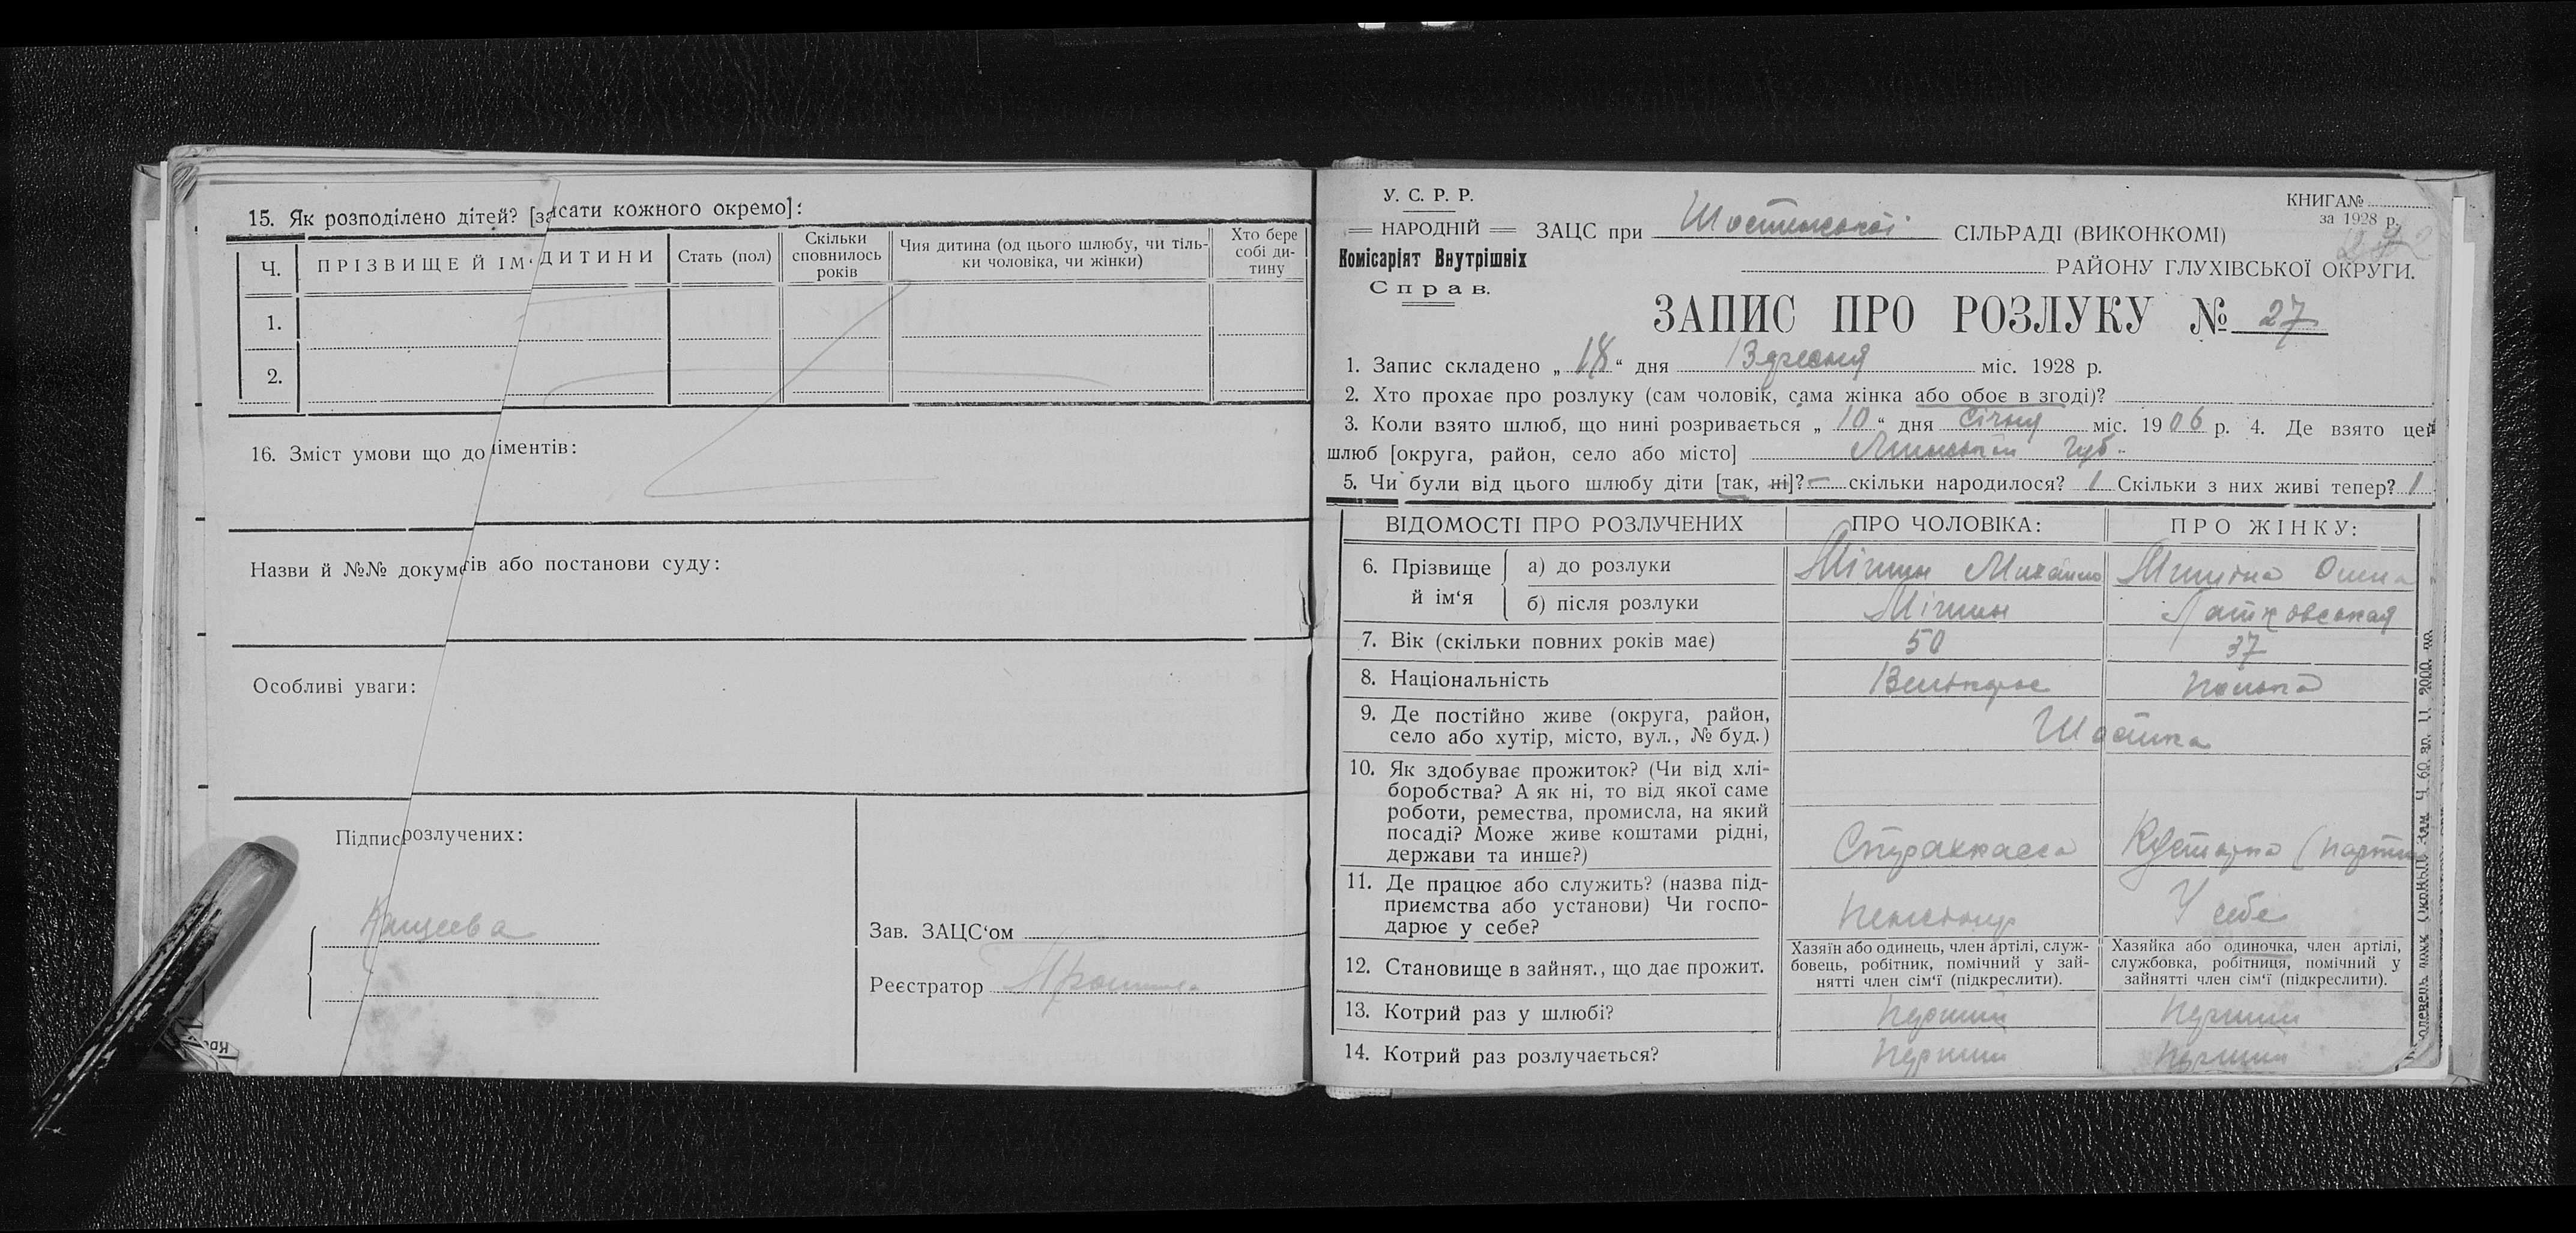 15. Як розподілено дітей? [записати кожного окремо]:
Ч.
ПРІЗВИЩЕ Й ІМ‘ ДИТИНИ
Стать (пол)
Скільки сповнилось років
Чия дитина (од цього шлюбу, чи тіль-
ки чоловіка, чи жінки)
Хто бере собі ди-
тину
1.
2.
16. Зміст умови що до ліментів:
Назви й №№ докумєгів або постанови суду:
Особливі уваги:
Підпис розлучених:
Кащеева
Зав. ЗАЦС‘ом
Реєстратор
У. С. Р. Р.
НАРОДНІЙ
Комісаріят Внутрішніх
Справ.
КНИГА №
за 1928 р.
ЗАЦС при Шостинської СІЛЬРАДІ (ВИКОНКОМІ)
РАЙОНУ ГЛУХІВСЬКОЇ ОКРУГИ.
ЗАПИС ПРО РОЗЛУКУ № 27
1. Запис складено „ 18 “ дня Вересня міс. 1928 р.
2. Хто прохає про розлуку (сам чоловік, сама жінка або обоє в згоді)?
3. Коли взято шлюб, що нині розривається „ 10 “ дня січня міс. 1906 р. 4. Де взято цей
шлюб [округа, район, село або місто] Минській губ.
5. Чи були від цього шлюбу діти [так, ні]? — скільки народилося? 1 Скільки з них живі тепер? 1
ВІДОМОСТІ ПРО РОЗЛУЧЕНИХ
ПРО ЧОЛОВІКА:
ПРО ЖІНКУ:
6. Прізвище й ім‘я
а) до розлуки
Мігин Михайло
б) після розлуки
Мігин
7. Вік (скільки повних років має)
50
37
8. Національність
Велікорос
полька
9. Де постійно живе (округа, район,
село або хутір, місто, вул., № буд.)
Шостка
10. Як здобуває прожиток? (Чи від хлі-
боробства? А як ні, то від якої саме
роботи, ремества, промисла, на який
посаді? Може живе коштами рідні,
держави та инше?)
Страхкасса
Кустарка
11. Де працює або служить? (назва під-
приємства або установи) Чи госпо-
дарює у себе?
пенсіонер
У себе
12. Становище в зайнят., що дає прожит.
Хазяїн або одинець, член артілі, служ-
бовець, робітник, помічний у зай-
нятті член сім‘ї (підкреслити).
Хазяйка або одиночка, член артілі,
службовка, робітниця, помічний у
зайнятті член сім‘ї (підкреслити).
13. Котрий раз у шлюбі?
перший
перший
14. Котрий раз розлучається?
перший
перший